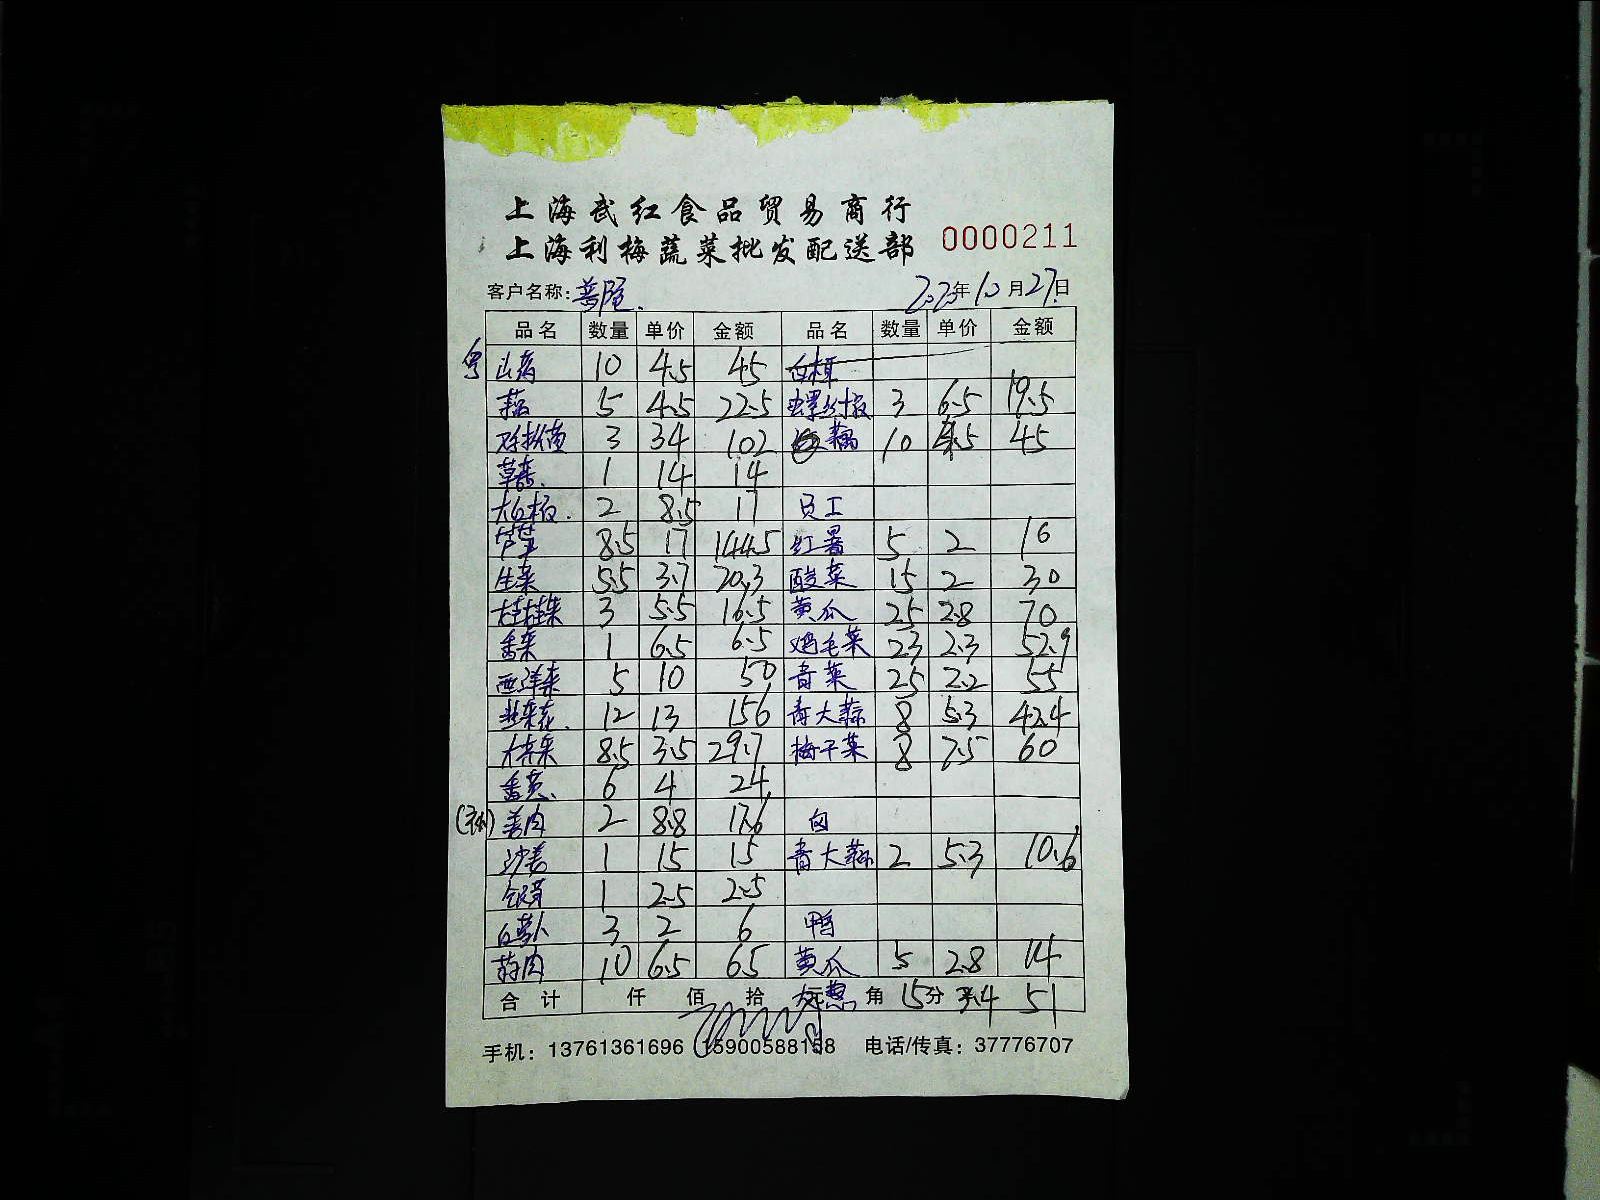 上海武红食品贸易商行
上海利梅蔬菜批发配送部 0000211
客户名称: 普陀. 2020年10月27日
品名 数量 单价 金额 品名 数量 单价 金额
山药 10 4.5 45
藕 5 4.5 22.5 螺丝椒 3 6.5 19.5
3 34 102 藕 10 4.5 45
草菇 1 14 14
2 8.5 17 员工
芦笋 8.5 17 144.5 红薯 5 2 10
生菜 5.5 3.7 20.3 酸菜 15 2 30
3 5.5 16.5 黄瓜 25 2.8 70
香菜 1 6.5 6.5 鸡毛菜 23 2.3 52.9
西洋菜 5 10 50 青菜 25 2.2 55
韭菜花. 12 13 156 青大蒜 8 5.3 42.4
8.5 3.5 29.7 梅干菜 8 7.5 60
香葱. 6 4 24
姜肉 2 8.8 17.6 卤
沙姜 1 15 15 青大蒜 2 5.3 10.6
银芽 1 2.5 2.5
白萝卜 3 2 6 鸭
蒜肉 10 6.5 65 黄瓜 5 2.8 14
合计 仟 佰 拾 元 角 15 分 3.4 51
手机: 13761361696 15900588158 电话/传真: 37776707